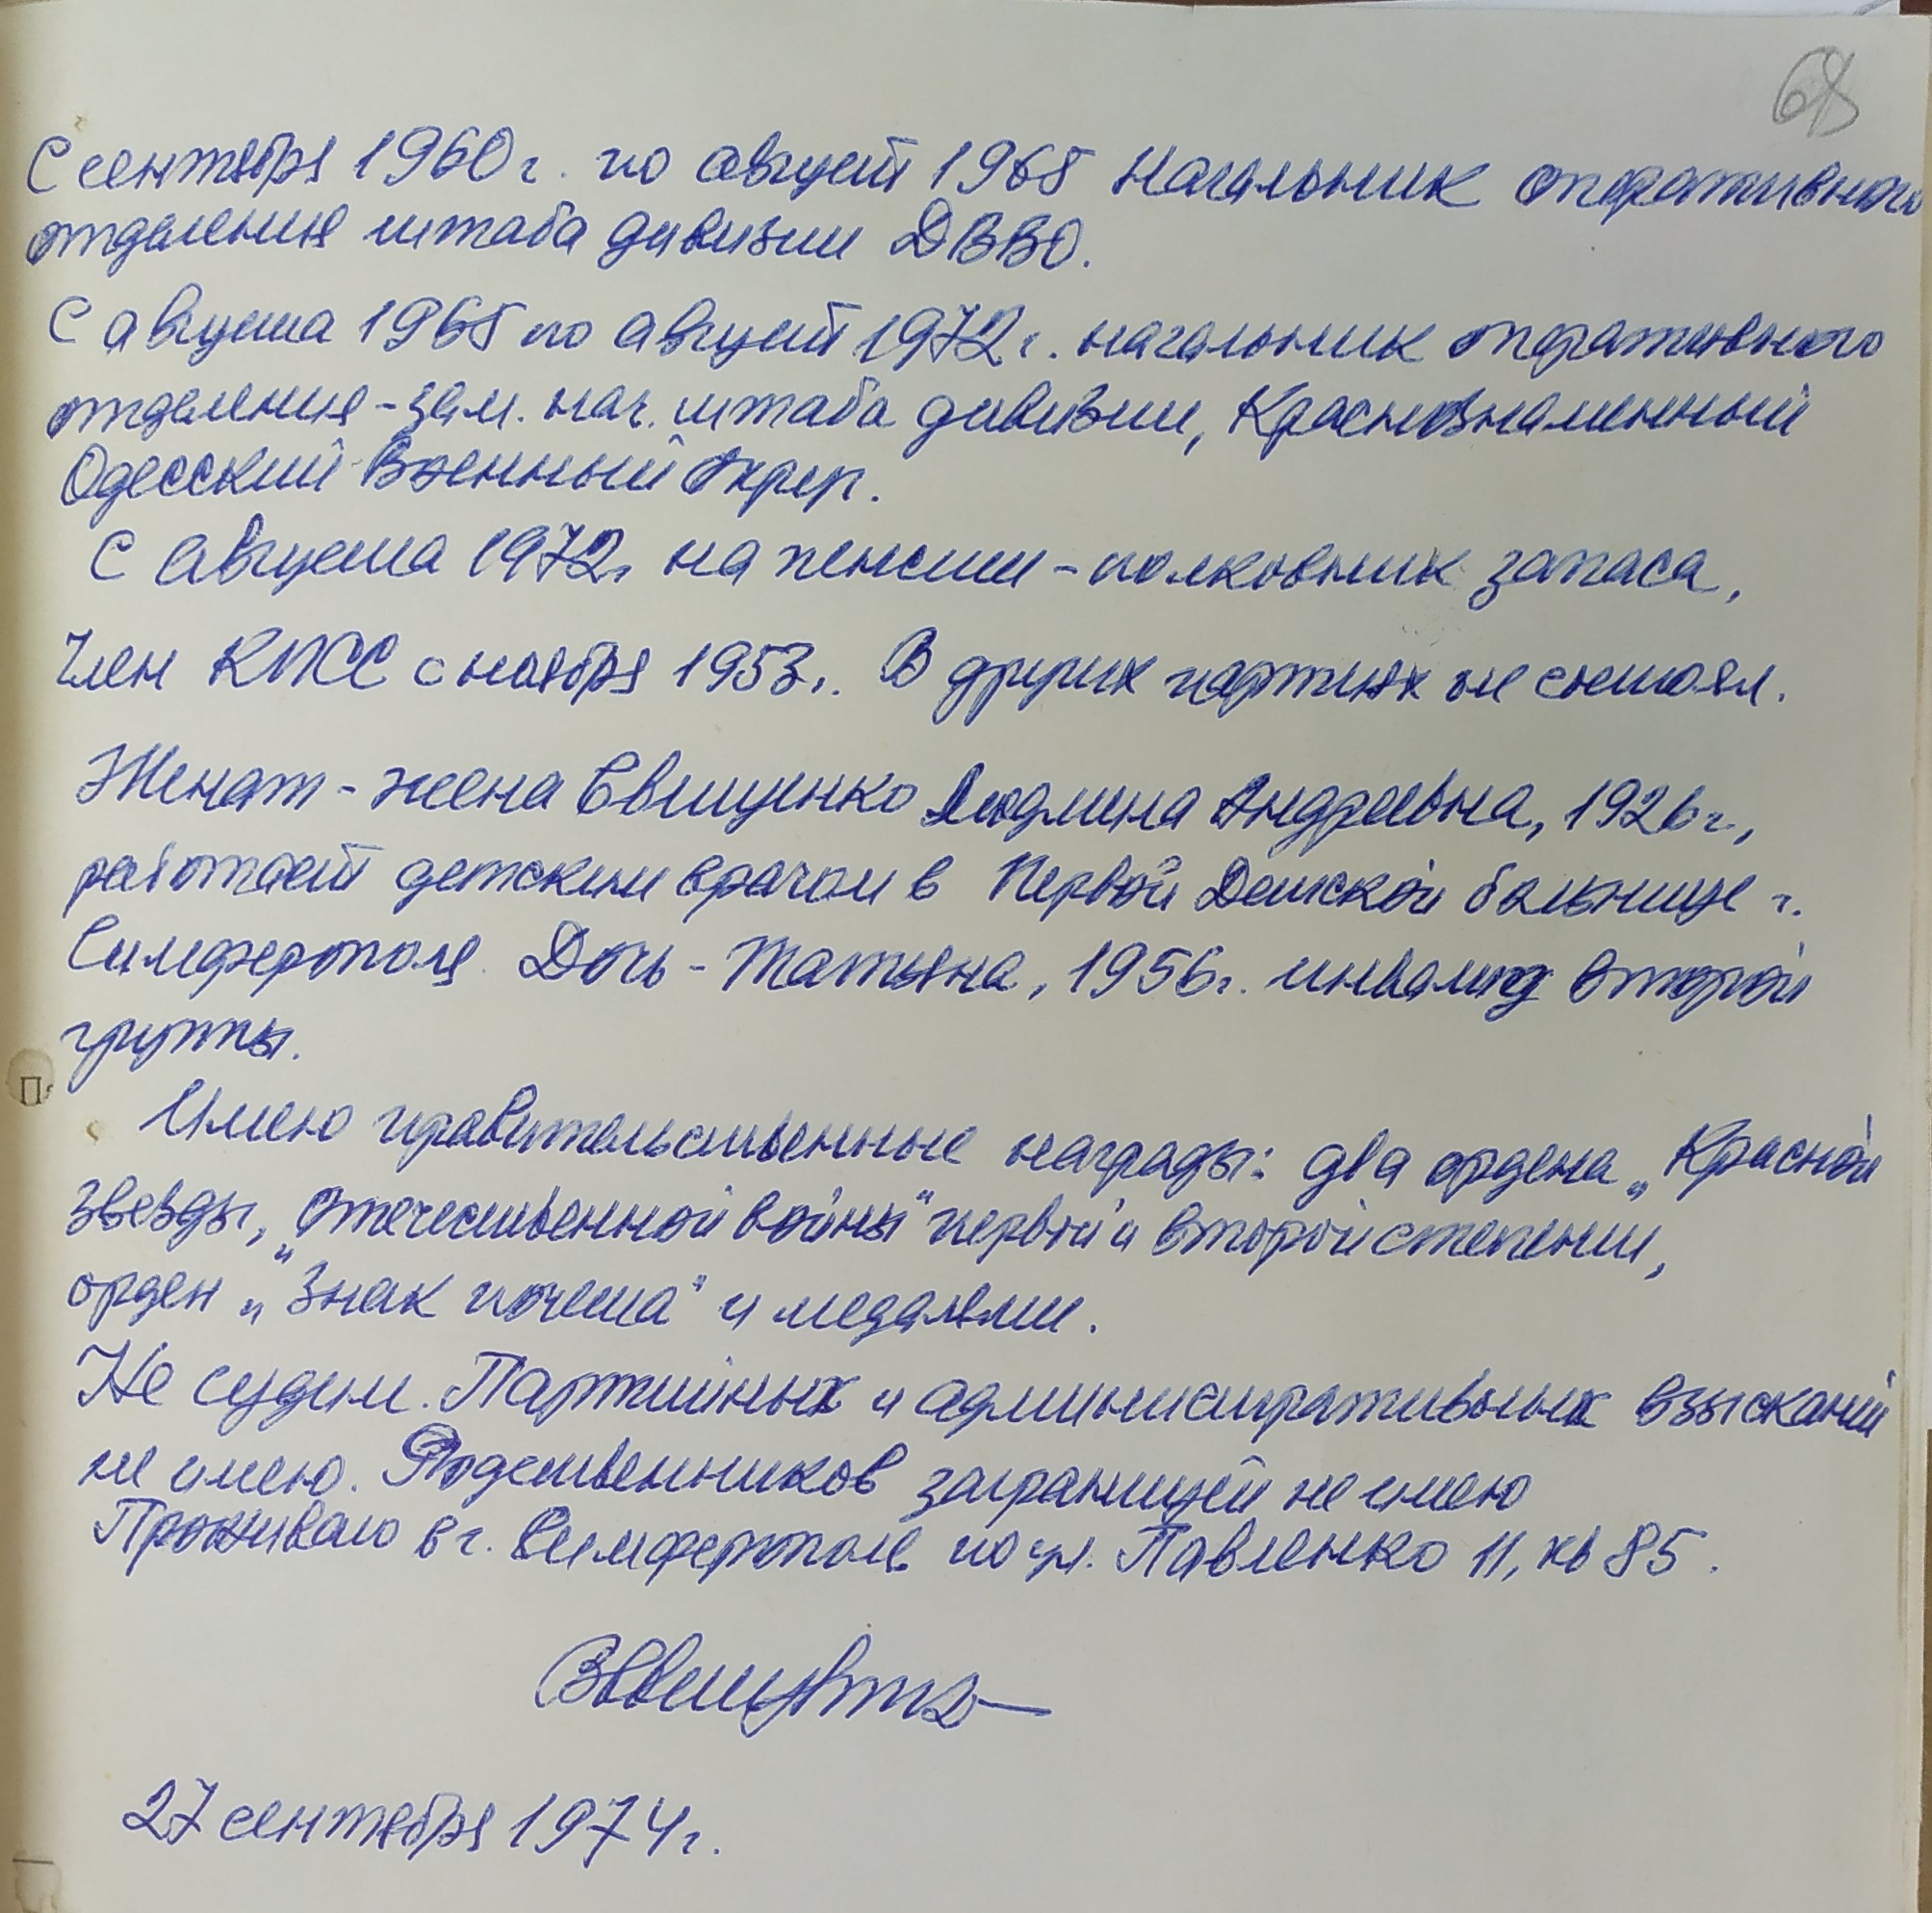 68
С сентября 1960 г. по август 1965 Начальник оперативного
отделения штаба дивизии ДВВО.
С августа 1965 по август 1972 г. начальник оперативного
отделения - зам. нач. штаба дивизии, Краснознаменный
Одесский Военный округ.
С августа 1972 г. на пенсии - полковник запаса,
Член КПСС с ноября 1953 г. В других партиях не состоял.
Женат - жена Свищенко Людмила Андреевна, 1926 г.,
работает детским врачом в Первой Детской больнице г.
Симферополя. Дочь - Татьяна, 1956 г. инвалид второй
группы.
Имею правительственные награды: два ордена „Красной
Звезды, „Отечественной войны" первой и второй степении,
орден „Знак почета" и медалями.
Не судим. Партийных и административных взысканий
не имею. Родственников заграницей не имею
Проживаю в г. Симферополе по ул. Павленко 11, кв 85.
27 сентября 1974 г.